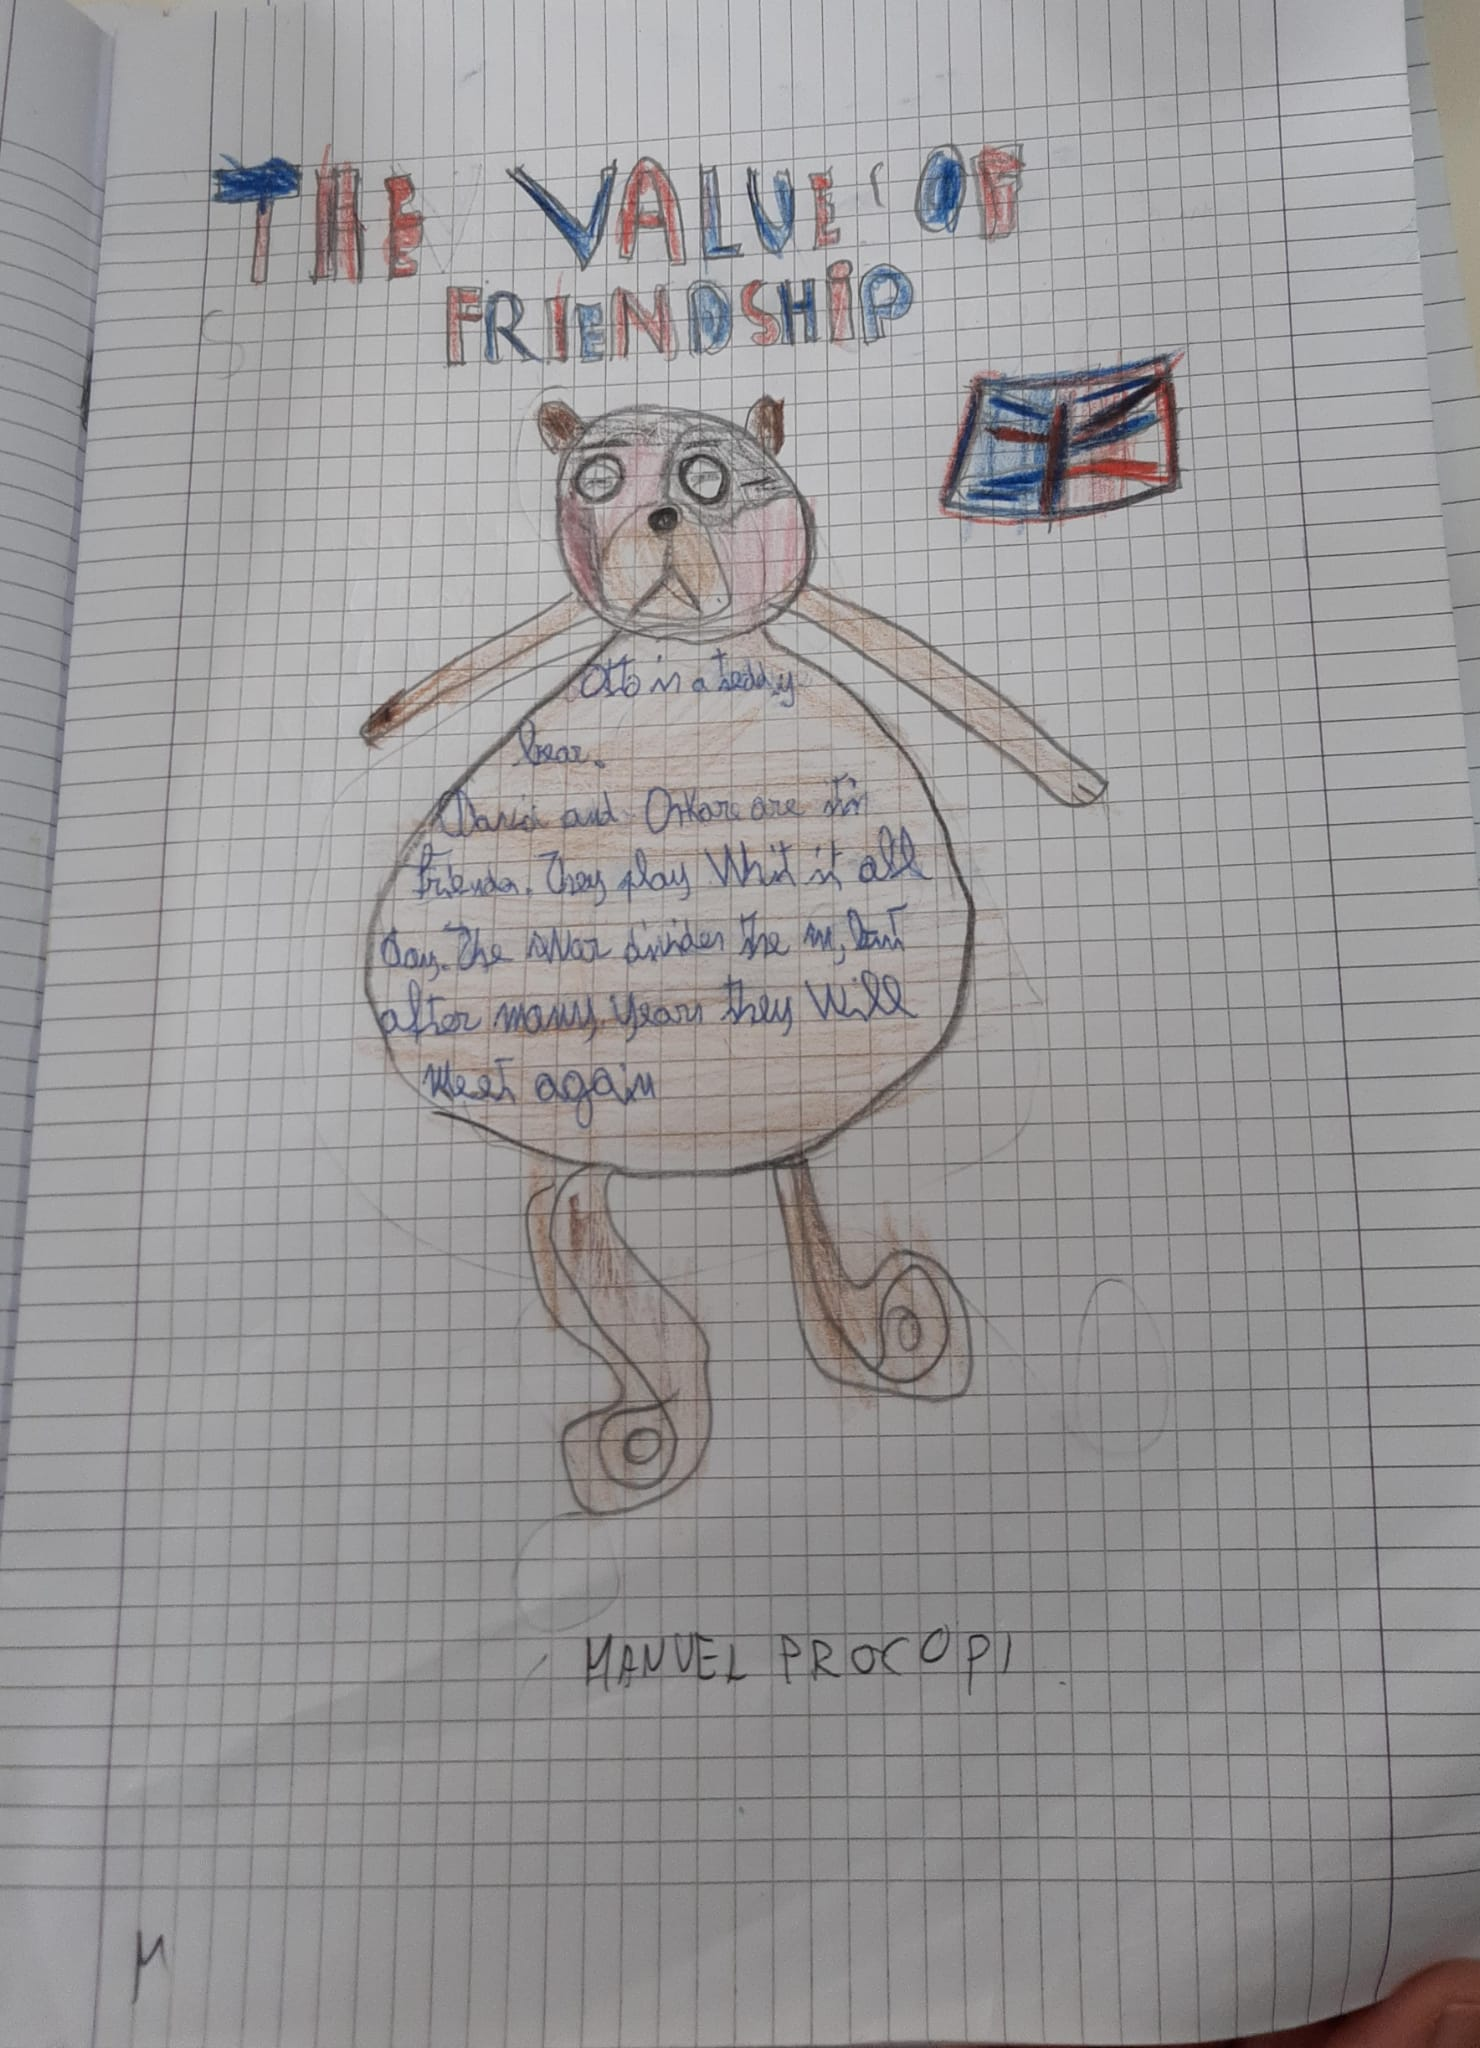 THE VALUE OF
FRIENDSHIP
Otto is a teddy
bear.
David and Oskar are his
friends. They play Whit it all
day. The War divides the m, but
after many years they Will
meet again
MANUEL PROCOPI
M